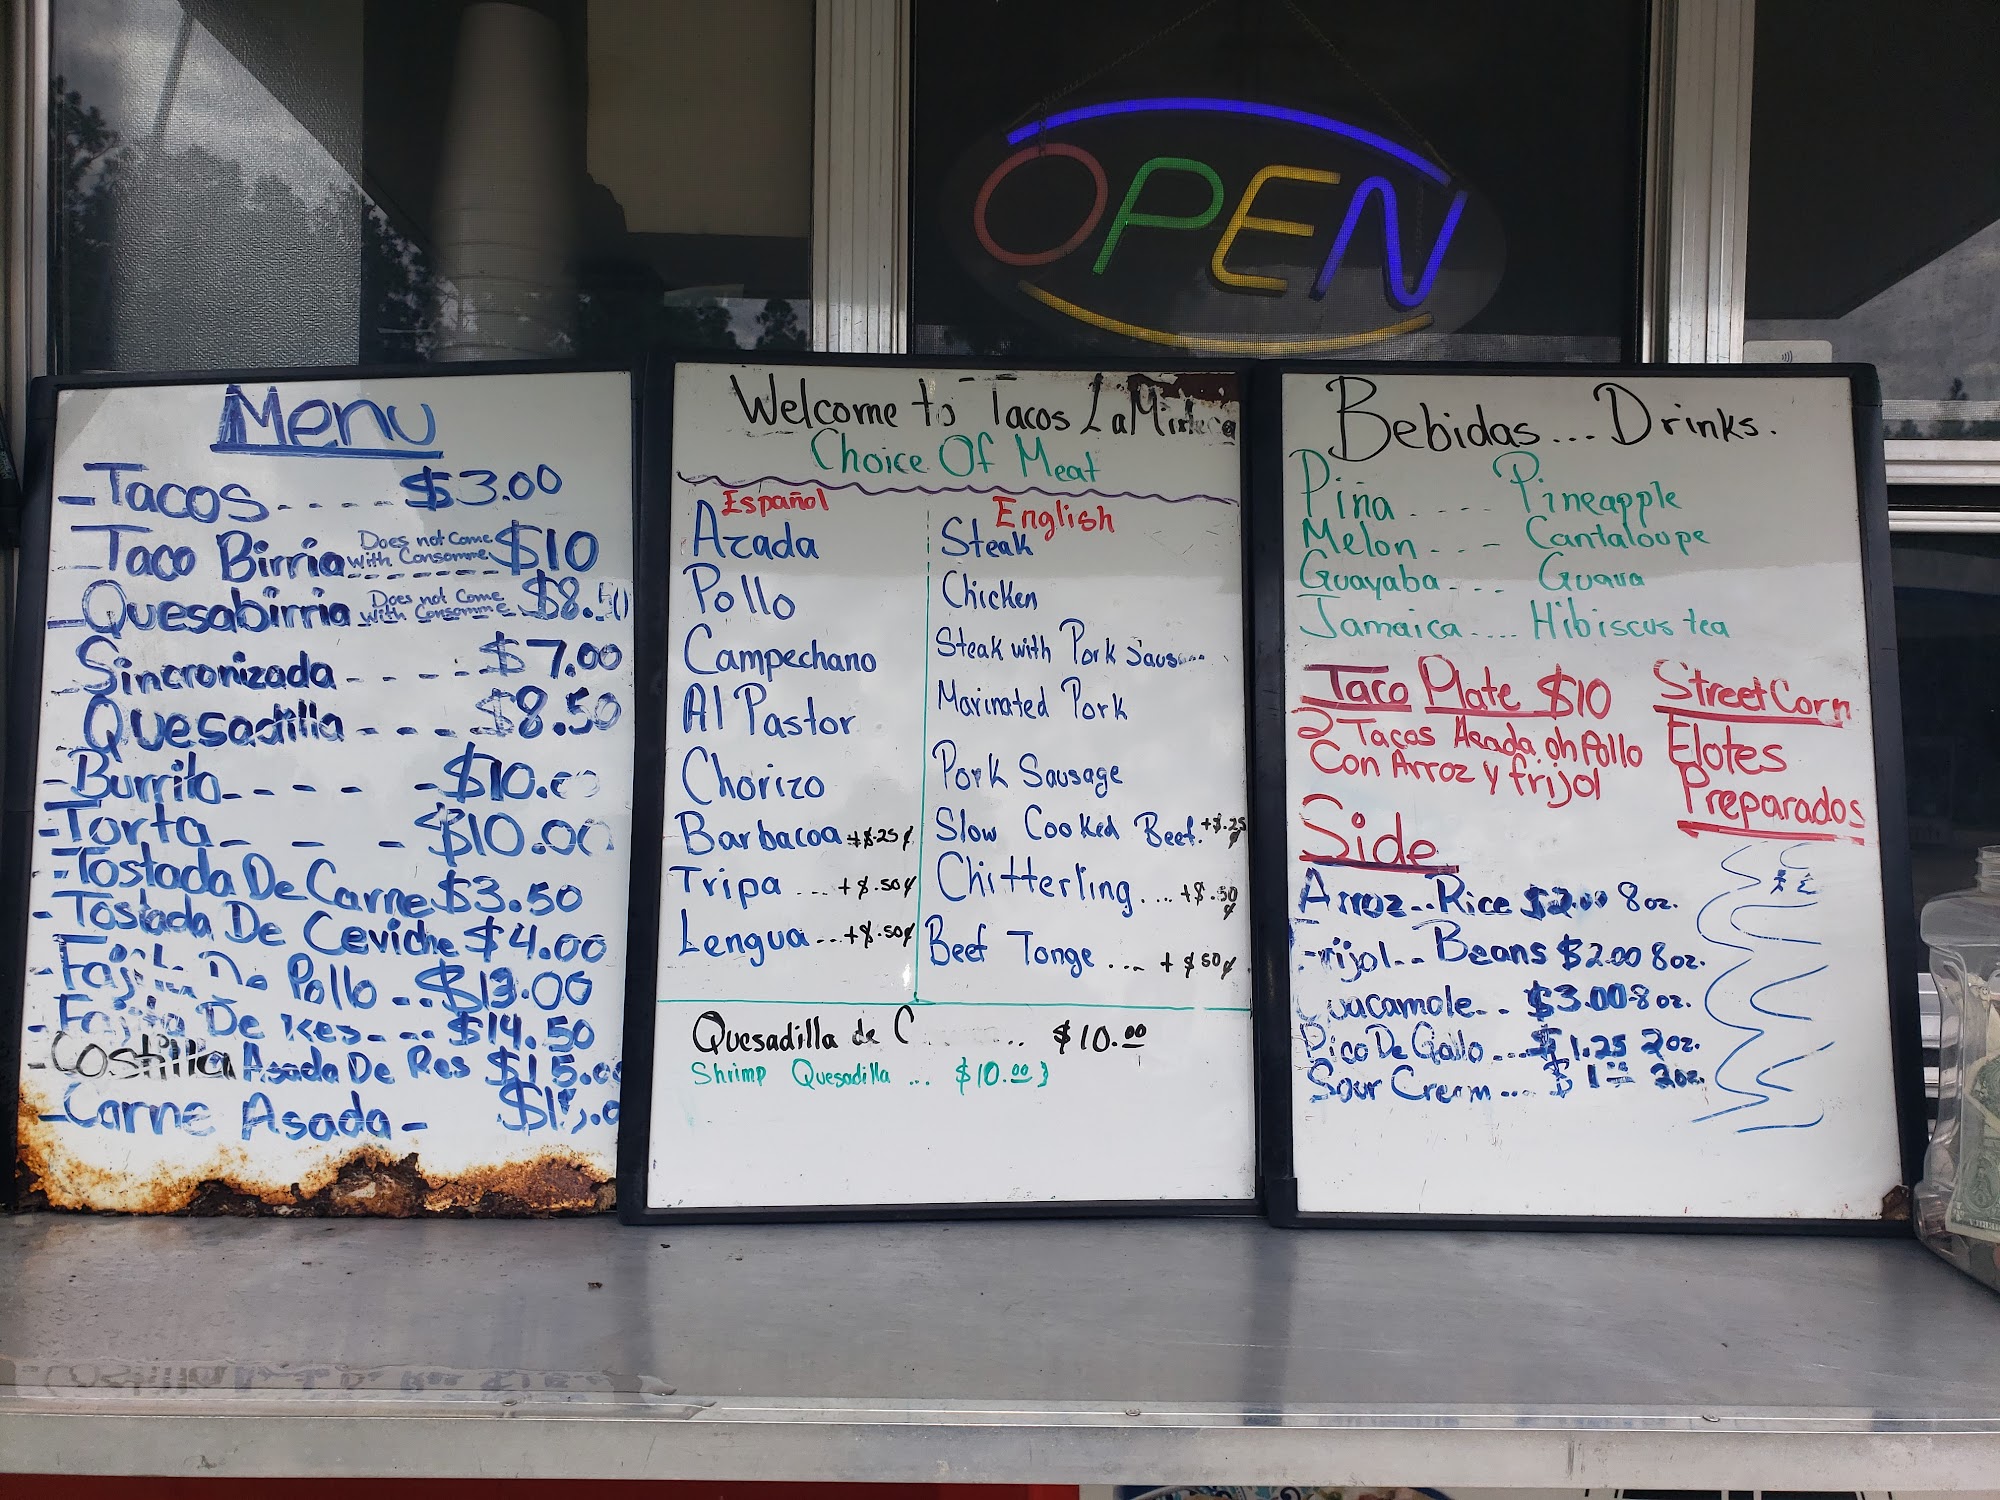 OPEN
Menu
- Tacos .... $3.00
- Taco Birria Does not Come With Consomme $10
- Quesabirria Does not Come With Consomme $8.50
- Sincronizada ..... $7.00
- Quesadilla ---- $8.50
- Burrito - - - - - $10.00
- Torta - - - $10.00
- Tostada De Carne $3.50
- Tostada De Ceviche $4.00
- Fajita De Pollo ... $13.00
- Fajita De Res ... $14.50
- Costilla Asada De Res $15.00
- Carne Asada -
Welcome to Tacos La
Choice Of Meat
Español English
Azada Steak
Pollo Chicken
Campechano Steak with Pork
Al Pastor Marinated Pork
Chorizo Pork Sausage
Barbacoa +$.25¢ Slow Cooked Beef. +$.25¢
Tripa ... +$.50¢ Chitterling.... +$.50¢
Lengua ... +$.50¢ Beef Tonge .... +$50¢
Quesadilla de ... $10.00
Shrimp Quesadilla ... $10.00
Bebidas... Drinks.
Piña .... Pineapple
Melon ... Cantaloupe
Guayaba ... Guava
Jamaica .... Hibiscus tea
Taco Plate $10
2 Tacos Asada oh Pollo
Con Arroz y frijol
Street Corn
Elotes
Preparados
Side
Arroz .. Rice $2.00 8oz.
Frijol .. Beans $2.00 8oz.
Guacamole .. $3.00-8oz.
Pico De Gallo ... $1.25 2oz.
Sour Cream .... $1 2oz.